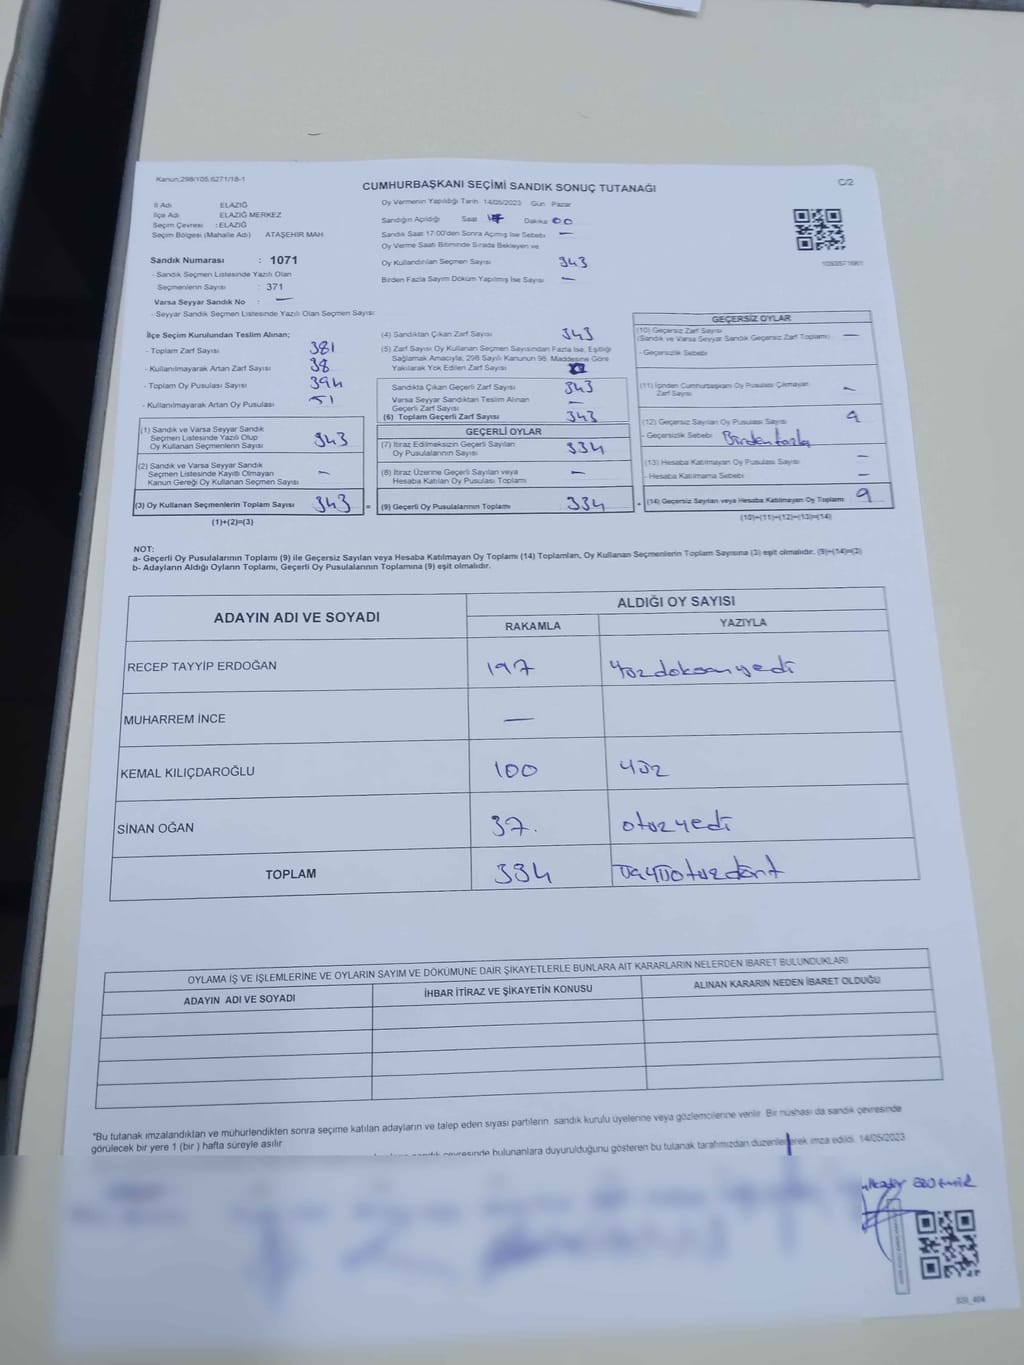 Kanun:298/105,6271/18-1
CUMHURBAŞKANI SEÇİMİ SANDIK SONUÇ TUTANAĞI
C/2
İl Adı ELAZIĞ
İlçe Adı ELAZIĞ MERKEZ
Seçim Çevresi : ELAZIĞ
Seçim Bölgesi (Mahalle Adı) ATAŞEHİR MAH
Oy Vermenin Yapıldığı Tarih 14/05/2023 Gün Pazar
Sandığın Açıldığı Saat 17 Dakika 00
Sandık Saat 17:00'den Sonra Açılmış İse Sebebi —
Oy Verme Saati Bitiminde Sırada Bekleyen ve
Oy Kullandırılan Seçmen Sayısı 343
Birden Fazla Sayım Döküm Yapılmış İse Sayısı —
Sandık Numarası : 1071
- Sandık Seçmen Listesinde Yazılı Olan
Seçmenlerin Sayısı : 371
Varsa Seyyar Sandık No : —
- Seyyar Sandık Seçmen Listesinde Yazılı Olan Seçmen Sayısı
İlçe Seçim Kurulundan Teslim Alınan;
- Toplam Zarf Sayısı 381
- Kullanılmayarak Artan Zarf Sayısı 38
- Toplam Oy Pusulası Sayısı 394
- Kullanılmayarak Artan Oy Pusulası 51
(1) Sandık ve Varsa Seyyar Sandık
Seçmen Listesinde Yazılı Olup
Oy Kullanan Seçmenlerin Sayısı 343
(2) Sandık ve Varsa Seyyar Sandık
Seçmen Listesinde Kayıtlı Olmayan
Kanun Gereği Oy Kullanan Seçmen Sayısı —
(3) Oy Kullanan Seçmenlerin Toplam Sayısı 343
(1)+(2)=(3)
(4) Sandıktan Çıkan Zarf Sayısı 343
(5) Zarf Sayısı Oy Kullanan Seçmen Sayısından Fazla İse, Eşitliği
Sağlamak Amacıyla, 298 Sayılı Kanunun 98. Maddesine Göre
Yakılarak Yok Edilen Zarf Sayısı
Sandıkta Çıkan Geçerli Zarf Sayısı 343
Varsa Seyyar Sandıktan Teslim Alınan
Geçerli Zarf Sayısı —
(6) Toplam Geçerli Zarf Sayısı 343
GEÇERLİ OYLAR
(7) İtiraz Edilmeksizin Geçerli Sayılan
Oy Pusulasının Sayısı 334
(8) İtiraz Üzerine Geçerli Sayılan veya
Hesaba Katılan Oy Pusulası Toplamı —
(9) Geçerli Oy Pusulalarının Toplamı 334
GEÇERSİZ OYLAR
(10) Geçersiz Zarf Sayısı
(Sandık ve Varsa Seyyar Sandık Geçersiz Zarf Toplamı) —
- Geçersizlik Sebebi
(11) İçinden Cumhurbaşkanı Oy Pusulası Çıkmayan
Zarf Sayısı —
(12) Geçersiz Sayılan Oy Pusulası Sayısı 9
- Geçersizlik Sebebi Birden fazla
(13) Hesaba Katılmayan Oy Pusulası Sayısı —
- Hesaba Katılmama Sebebi —
(14) Geçersiz Sayılan veya Hesaba Katılmayan Oy Toplamı 9
(10)+(11)+(12)+(13)=(14)
NOT:
a- Geçerli Oy Pusulalarının Toplamı (9) ile Geçersiz Sayılan veya Hesaba Katılmayan Oy Toplamı (14) Toplamları, Oy Kullanan Seçmenlerin Toplam Sayısına (3) eşit olmalıdır. (9)+(14)=(3)
b- Adayların Aldığı Oyların Toplamı, Geçerli Oy Pusulalarının Toplamına (9) eşit olmalıdır.
ADAYIN ADI VE SOYADI
ALDIĞI OY SAYISI
RAKAMLA YAZIYLA
RECEP TAYYİP ERDOĞAN 197 Yüzdoksanyedi
MUHARREM İNCE —
KEMAL KILIÇDAROĞLU 100 Yüz
SİNAN OĞAN 37. otuzyedi
TOPLAM 334 üçyüzotuzdört
OYLAMA İŞ VE İŞLEMLERİNE VE OYLARIN SAYIM VE DÖKÜMÜNE DAİR ŞİKAYETLERLE BUNLARA AİT KARARLARIN NELERDEN İBARET BULUNDUKLARI
ADAYIN ADI VE SOYADI İHBAR İTİRAZ VE ŞİKAYETİN KONUSU ALINAN KARARIN NEDEN İBARET OLDUĞU
*Bu tutanak imzalandıktan ve mühürlendikten sonra seçime katılan adayların ve talep eden siyasi partilerin sandık kurulu üyelerine veya gözlemcilerine verilir. Bir nüshası da sandık çevresinde
görülecek bir yere 1 (bir) hafta süreyle asılır.
bulunanlara duyurulduğunu gösteren bu tutanak tarafımızdan düzenlenerek imza edildi. 14/05/2023